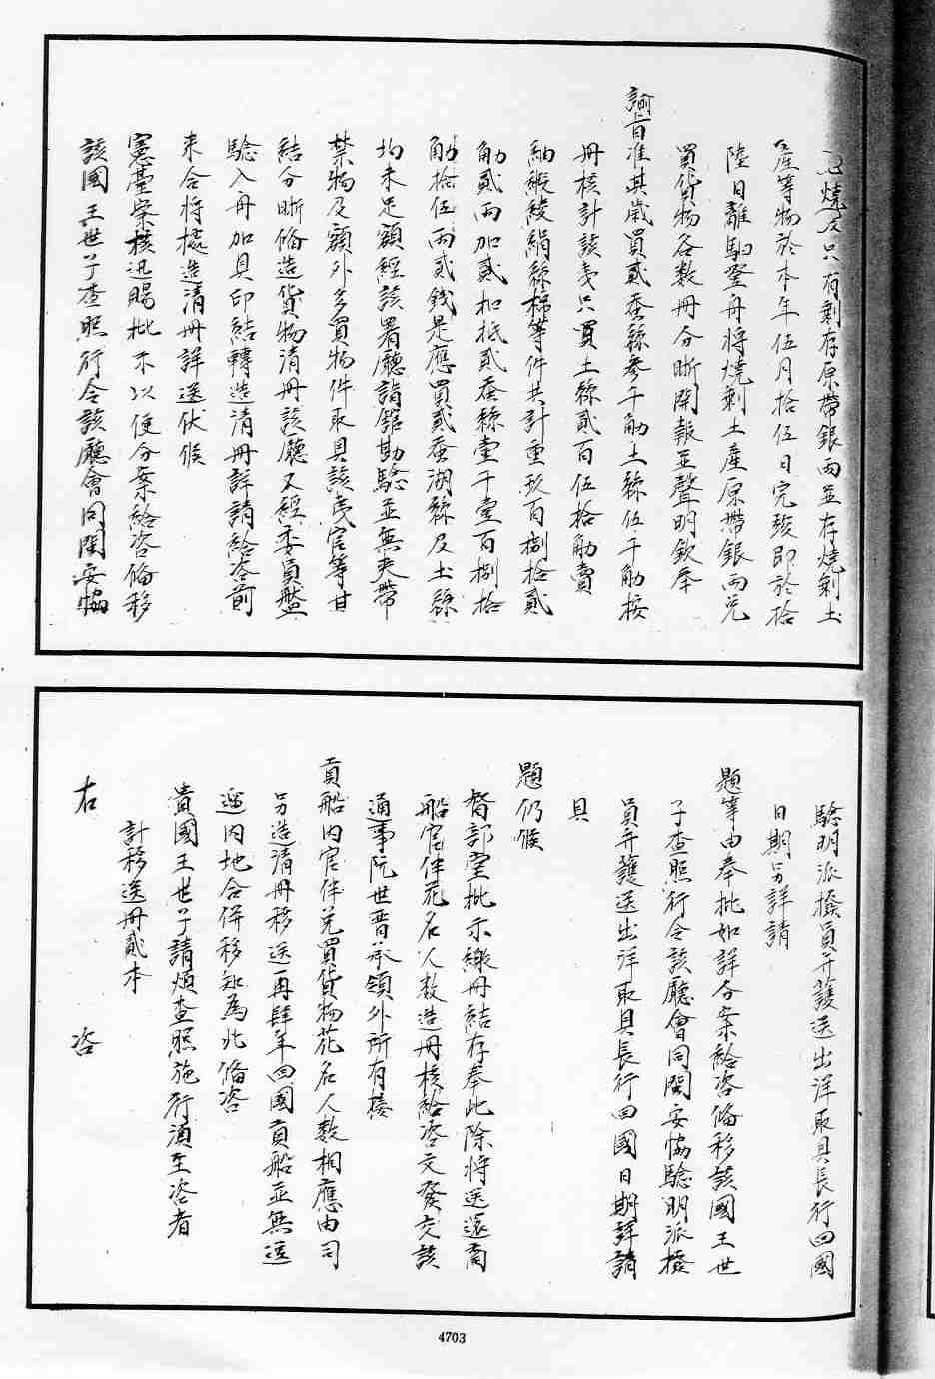 燒及只有剩存原帶銀兩並存燒剩土
產等物於本年伍月拾伍日完竣即於拾
陸日離馹登舟將燒剩土產原帶銀兩兑
買貨物各數冊分晰開報並聲明欽奉
諭旨准其歲買貳蚕絲參千觔土絲伍千觔按
冊核計該夷只買土絲貳百伍拾觔賣
紬緞綾絹絲棉等件共計重玖百捌拾貳
觔貳兩加貳扣抵貳蚕絲壹千壹百捌拾
觔拾伍兩貳錢是應買貳蚕湖絲及土絲
均未足額經該署廳詣館勘騐並無夾帶
禁物及額外多買物件取具該夷官等甘
結分晰俻造貨物清冊該廳又經委員盤
騐入冊加具印結轉造清冊詳請給咨前
來合將據造清冊詳送伏候
憲臺察核迅賜批示以便分案給咨俻移
該國王世子查照行令該廳會同閩安協
騐明派撥員弁護送出洋取具長行囬國
日期另詳請
題等由奉批如詳分案給咨俻移該國王世
子查照行令該廳會同閩安協騐明派撥
員弁護送出洋取具長行囬國日期詳請
具
題仍候
督部堂批示繳冊結存奉此除將送還南
船官伴花名人数造冊核給咨文發交該
通事阮世普承領外所有接
貢船内官伴兑買貨物花名人数相應由司
另造清冊移送再肆年囬國貢船並無逗
遛内地合併移知為此俻咨
貴國王世子請煩查照施行湏至咨者
計移送冊貳本
右咨
4703